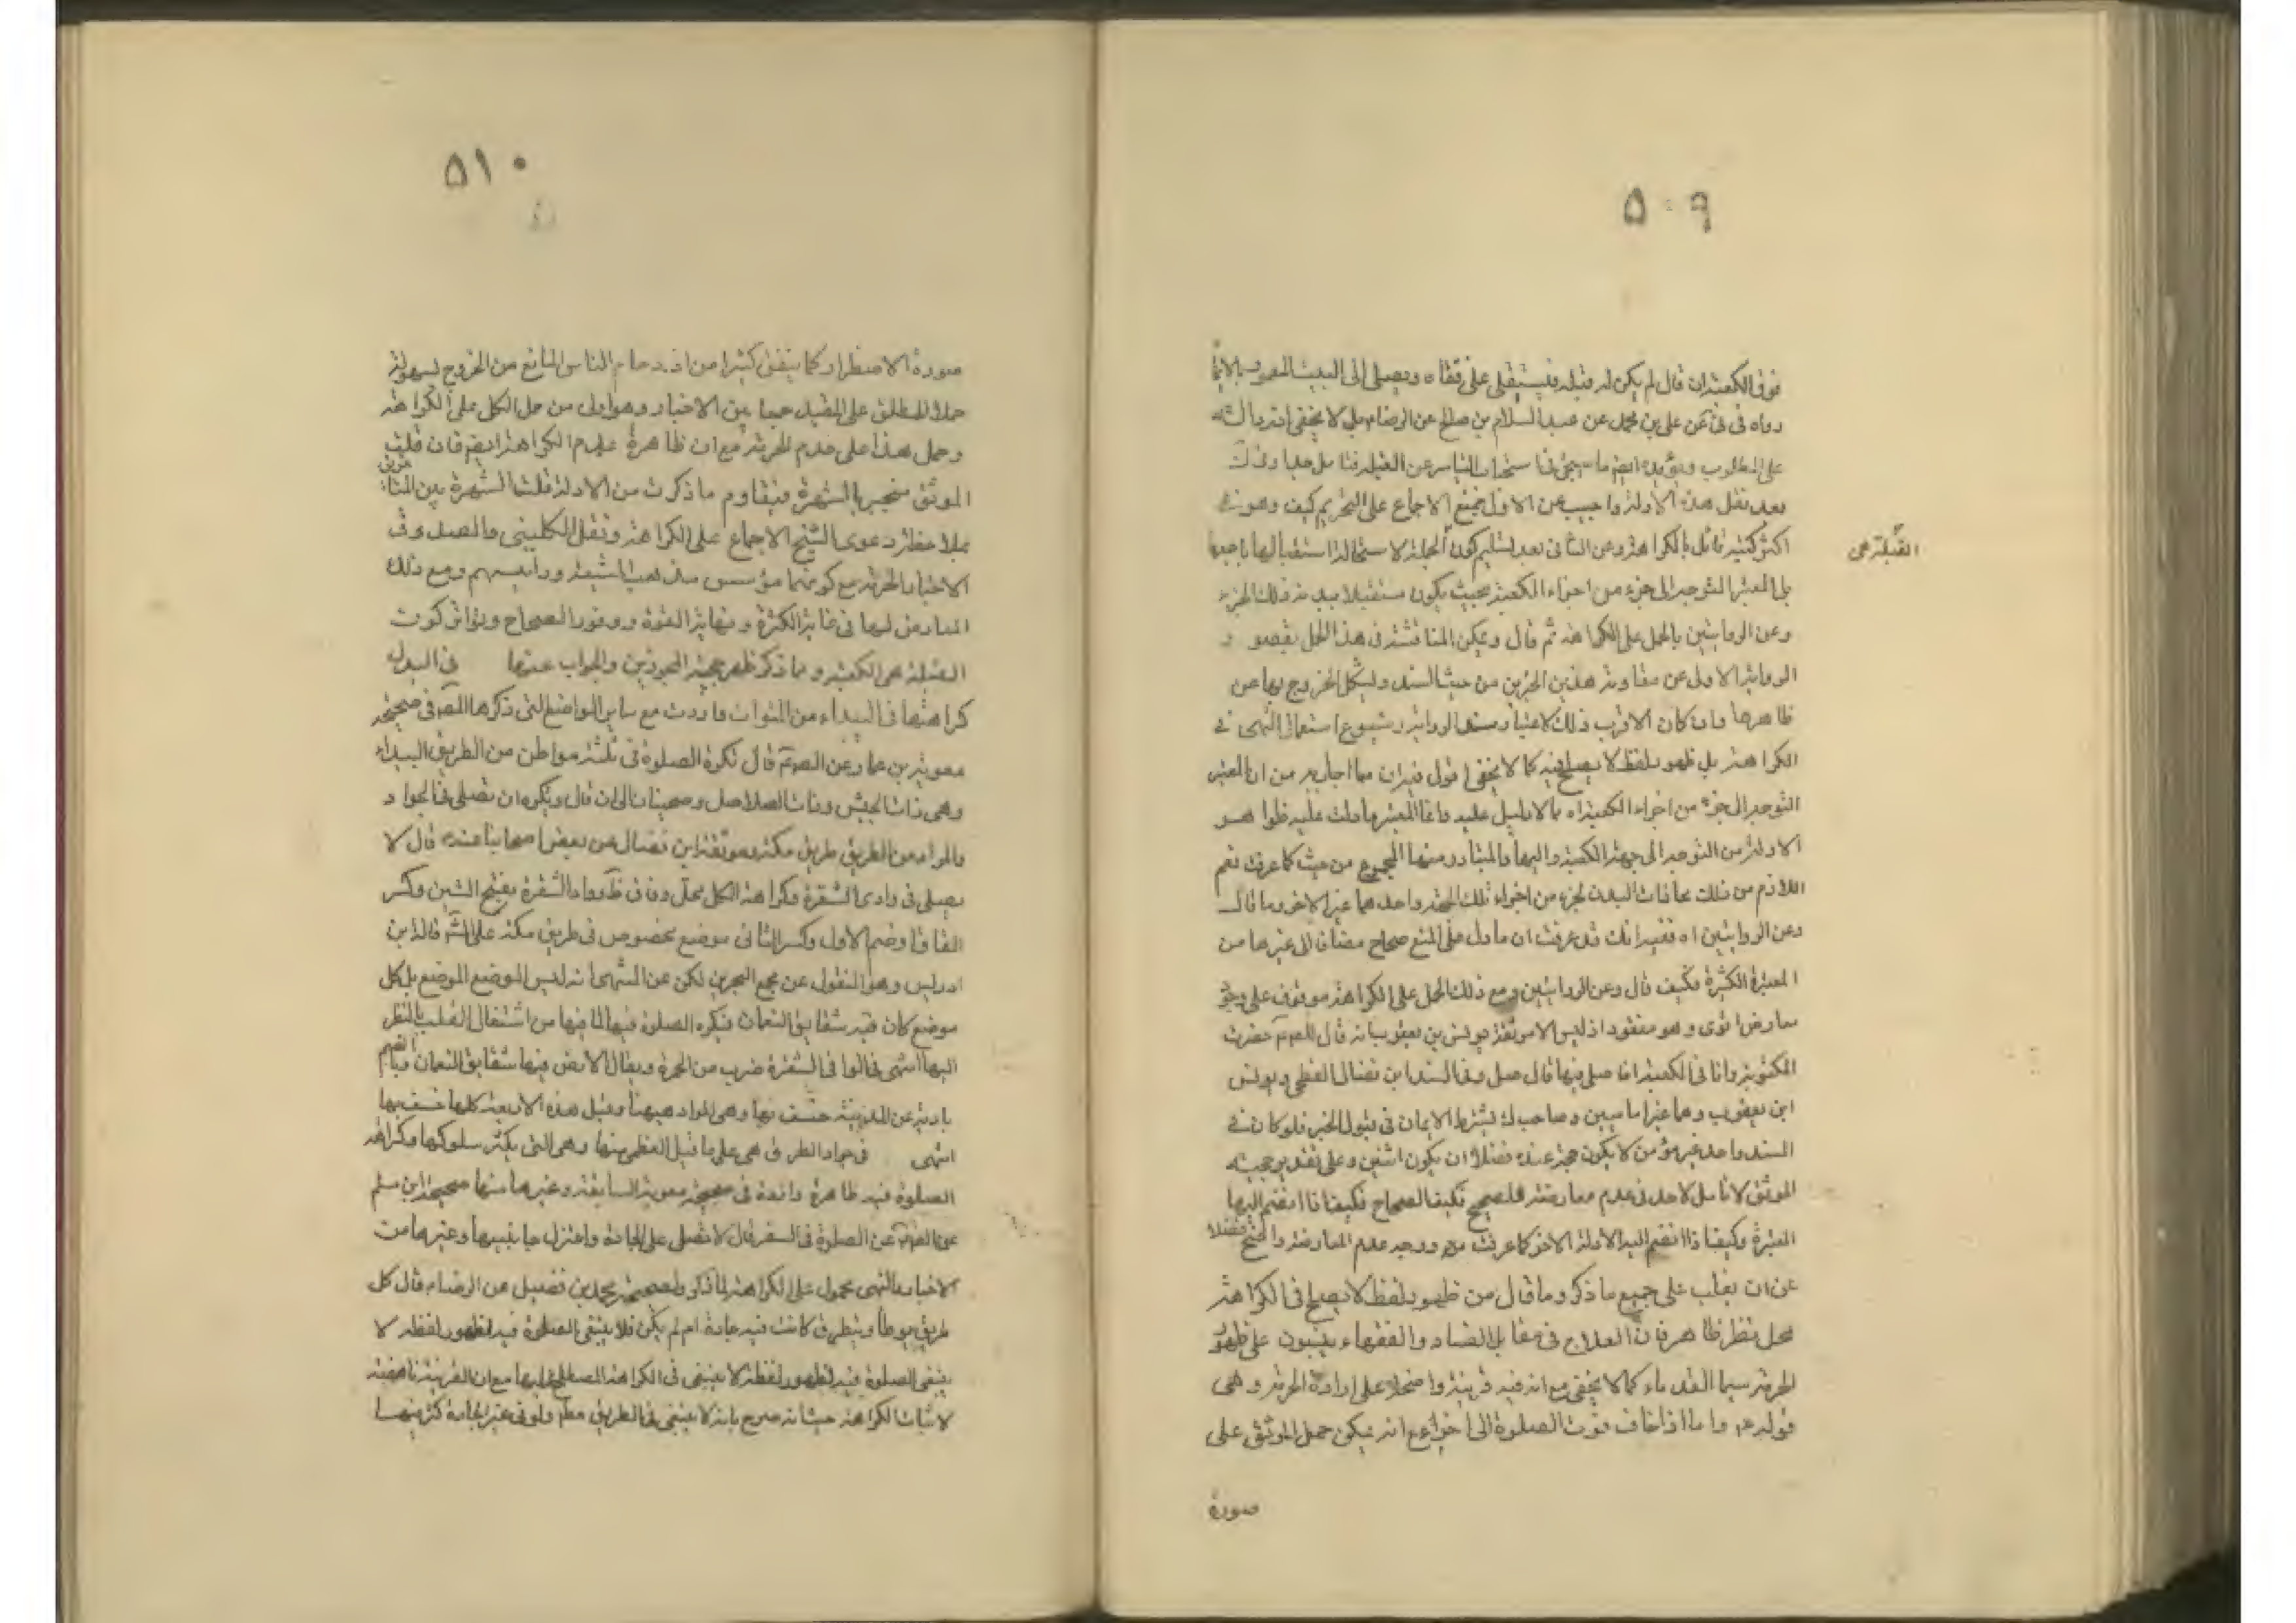 ٥٠٩
فوق الكعبة ان قال لم يكن له قبلة فيستلقى على قفاه ويصلى الى البيت المعمور بالايماء
رواه فى عن على بن محمد عن عبد السلام بن صالح عن الرضاء بل لا يخفى انه دالة
على المطلوب ويؤيده ايضا ما سيجئ فى استحباب التياسر عن القبلة فتامل جدا
بعد نقل هذه الادلة واجيب عن الاول بمنع الاجماع على التحريم كيف وهو فى
القبلة هى
اكثر كتبه قائل بالكراهة وعن الثانى بعد تسليم كون الجملة لا استحالة استقبالها باجمعها
بل المعتبر التوجه الى جزء من اجزاء الكعبة بحيث يكون مستقبلا ببدنه ذلك الجزء
وعن الروايتين بالحمل على الكراهة ثم قال ويمكن المناقشة فى هذا الحمل بقصور
الرواية الاولى عن مقاومة هذين الخبرين من حيث السند وليشكل الخروج بها عن
ظاهرها وان كان الاقرب ذلك لاعتبار سند الرواية وشيوع استعمال النهى فى
الكراهة بل ظهور لفظ لا يصلح فيه كما لا يخفى اقول فيه ان ما اجاب به من ان المعتبر
التوجه الى جزء من اجزاء الكعبة اه مما لا دليل عليه وانما المعتبر ما دلت عليه ظواهر
الادلة من التوجه الى جهة الكعبة واليها والمتبادر منها المجموع من حيث كما عرفت نعم
اللازم من ذلك محاذات البدن لجزء من اجزاء تلك الجهة واحدهما غير الاخر وما قال
وعن الروايتين اه ففيه انك قد عرفت ان ما دل على المنع صحاح مضاف الى غيرها من
المعتبرة الكثيرة فكيف قال وعن الروايتين ومع ذلك الحمل على الكراهة موقوف على وجود
معارض اقوى وهو مفقود اذ ليس الا موثقة يونس بن يعقوب انه قال للصم حضرت
المكتوبة وانا فى الكعبة افاصلى فيها قال صل وفى السند ابن فضال الفطحى ويونس
ابن يعقوب وهما غير اماميين وصاحب ك يشترط الايمان فى قبول الخبر فلو كان فى
السند واحد غير مؤمن لا يكون حجة عنده فضلا ان يكون اثنين وعلى تقدير حجيته
الموثق لا تامل لاحد فى عدم معارضته للصحيح فكيف الصحاح فكيف اذا انضم اليها
المعتبرة وكيف اذا انضم اليه الادلة الاخر كما عرفت ووجه عدم المعارضة واضح فضلا
عن ان يغلب على جميع ما ذكر وما قال من ظهور لفظ لا يصلح فى الكراهة
محل نظر ظاهر فان الصلاح فى مقابل الفساد والفقهاء يبنون على ظهور
الحرمة سيما القدماء كما لا يخفى مع انه فيه قرينة واضحة على ارادة الحرمة وهى
قوله ع واما اذا خاف فوت الصلوة الى اخره مع انه يمكن حمل الموثق على
صورة
٥١٠
صورة الاضطرار كما يتفق كثيرا من ازدحام الناس المانع من الخروج لسهولة
حملا للمطلق على المقيد جمعا بين الاخبار وهو اولى من حمل الكل على الكراهة
وحمل هذا على عدم الحرمة مع ان ظاهره عدم الكراهة ايضا فان قلت
الموثق منجبر بالشهرة فيقاوم ما ذكرت من الادلة قلت الشهرة بين المتاخرين
بملاحظة دعوى الشيخ الاجماع على الكراهة ونقل الكلينى والصدوق
الاخبار الحرمة مع كونهما مؤسس مذهب الشيعة ورئيسهم ومع ذلك
المعارض لها فى غاية الكثرة ونهاية القوة ووفور الصحاح وتواتر كون
القبلة هى الكعبة ومما ذكر ظهر حجة المجوزين والجواب عنها فى البيداء
كراهتها فى البيداء من المتواترات وردت مع ساير المواضع التى ذكرها المصر فى صحيحة
معوية بن عمار عن الصم قال تكره الصلوة فى ثلثة مواطن من الطريق البيداء
وهى ذات الجيش وذات الصلاصل وضجنان الى ان قال ويكره ان يصلى فى الجواد
والمراد من الطريق طريق مكة وموثقة ابن فضال عن بعض اصحابنا عنه قال لا
يصلى فى وادى الشقرة وكراهة الكل محل وفاق ظ ووادى الشقرة بفتح الشين وكسر
القاف او ضم الاول وكسر الثانى موضع مخصوص فى طريق مكة على قاله ابن
ادريس وهو المنقول عن مجمع البحرين لكن عن المنتهى انه ليس الموضع الموضع بل كل
موضع كان فيه شقايق النعمان فيكره الصلوة فيها لما فيها من اشتغال القلب بالنظر
اليها انتهى فى الوافى الشقرة ضرب من الحمرة ويقال الارض فيها شقايق النعمان وبالضم
بادية عن المدينة خسف بها وهى المراد ههنا وقيل هذه الاربعة كلها خسف بها
انتهى فى جواد الطرق هى على ما قيل العظمى منها وهى التى يكثر سلوكها وكراهة
الصلوة فيه ظاهرة واردة فى صحيحة معوية السابقة وغيرها منها صحيحة ابن مسلم
عن الصم عن الصلوة فى السفر قال لا تصلى على الجادة واعتزل جانبيها وغيرها من
الاخبار والنهى محمول على الكراهة لما ذكر ولصحيحة محمد بن فضيل عن الرضاء قال كل
طريق يوطأ ويتطرق كانت فيه جادة ام لم يكن فلا ينبغى الصلوة فيه لظهور لفظه لا
ينبغى الصلوة فيه لظهور لفظة لا ينبغى فى الكراهة المصطلح عليها مع ان القرينة ناهضة
لاثبات الكراهة حيث انه صرح بانه لا ينبغى فى الطريق مطم ولو فى غير الجادة كثر منها